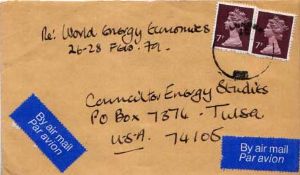 Re: World Energy Economics
26-28 Feb. 79.
7P
7P
Council for Energy Studies
PO Box 7374 - Tulsa
U.S.A. 74105
By air mail
Par avion
By air mail
Par avion